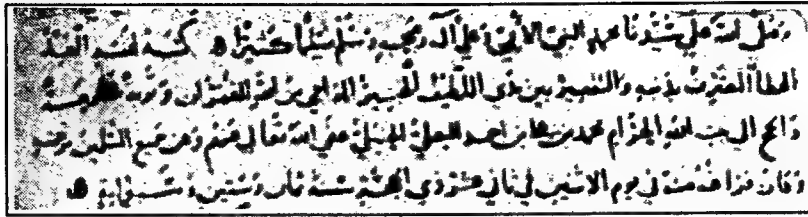 وصلى الله على سيدنا محمد النبي الأمي وعلى آله وصحبه وسلم تسليما كثيرا كتبه لنفسه العبد
الخطاء المعترف بذنبه والتقصير بين يدي اللطيف الخبير الراجي من الله الغفران
الى بيت الله الحرام محمد بن احمد البعلي الحنبلي عفى الله تعالى عنهم وعن جميع المسلمين
وكان فراغه منه في يوم الاثنين ثاني عشر ذي الحجة سنة ثمان وستين